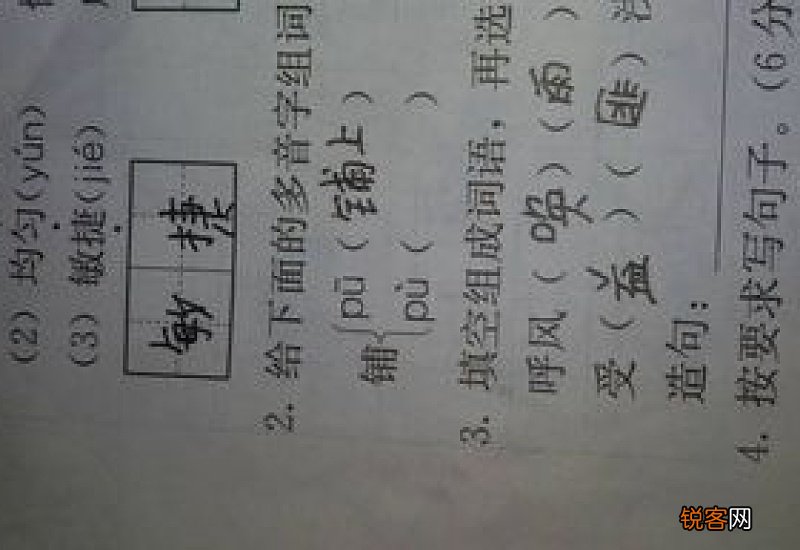 (2) 均匀(yún)
(3) 敏捷(jié)
敏捷
2. 给下面的多音字组词
铺{pū (铺上)
pù ( )
3. 填空组成词语，再选
呼风(唤)(雨)
受(益)(匪)
造句：
4. 按要求写句子。(6分
锐客网